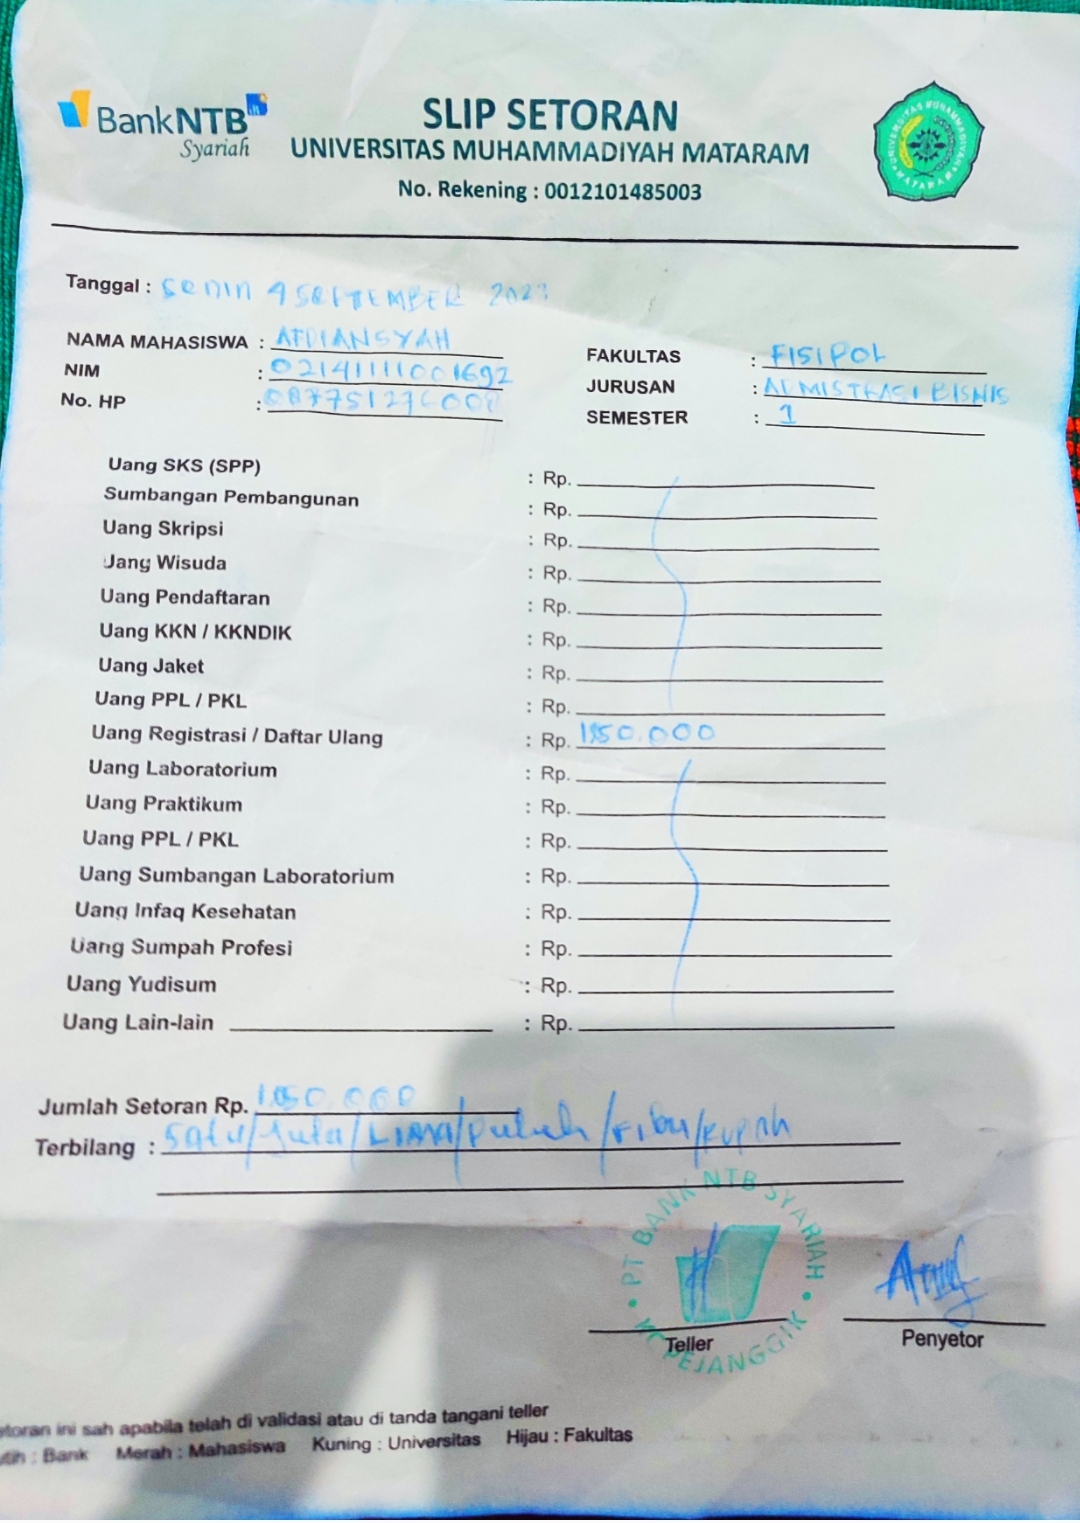 BankNTB
Syariah
SLIP SETORAN
UNIVERSITAS MUHAMMADIYAH MATARAM
No. Rekening : 0012101485003
UNIVERSITAS MUHAMMADIYAH MATARAM
Tanggal : SENIN 4 SEPTEMBER 2023
NAMA MAHASISWA : ARDIANSYAH
NIM : 02141111001692
No. HP :
FAKULTAS : FISIPOL
JURUSAN : ADMISTRASI BISNIS
SEMESTER : 1
Uang SKS (SPP) : Rp.
Sumbangan Pembangunan : Rp.
Uang Skripsi : Rp.
Uang Wisuda : Rp.
Uang Pendaftaran : Rp.
Uang KKN / KKNDIK : Rp.
Uang Jaket : Rp.
Uang PPL / PKL : Rp.
Uang Registrasi / Daftar Ulang : Rp. 1.050.000
Uang Laboratorium : Rp.
Uang Praktikum : Rp.
Uang PPL / PKL : Rp.
Uang Sumbangan Laboratorium : Rp.
Uang Infaq Kesehatan : Rp.
Uang Sumpah Profesi : Rp.
Uang Yudisum : Rp.
Uang Lain-lain : Rp.
Jumlah Setoran Rp. 1.050.000
Terbilang : Satu/Juta/LIMA/puluh/ribu/rupiah
PT BANK NTB SYARIAH
KC PEJANGGIK
Teller
Penyetor
etoran ini sah apabila telah di validasi atau di tanda tangani teller
utih : Bank Merah : Mahasiswa Kuning : Universitas Hijau : Fakultas